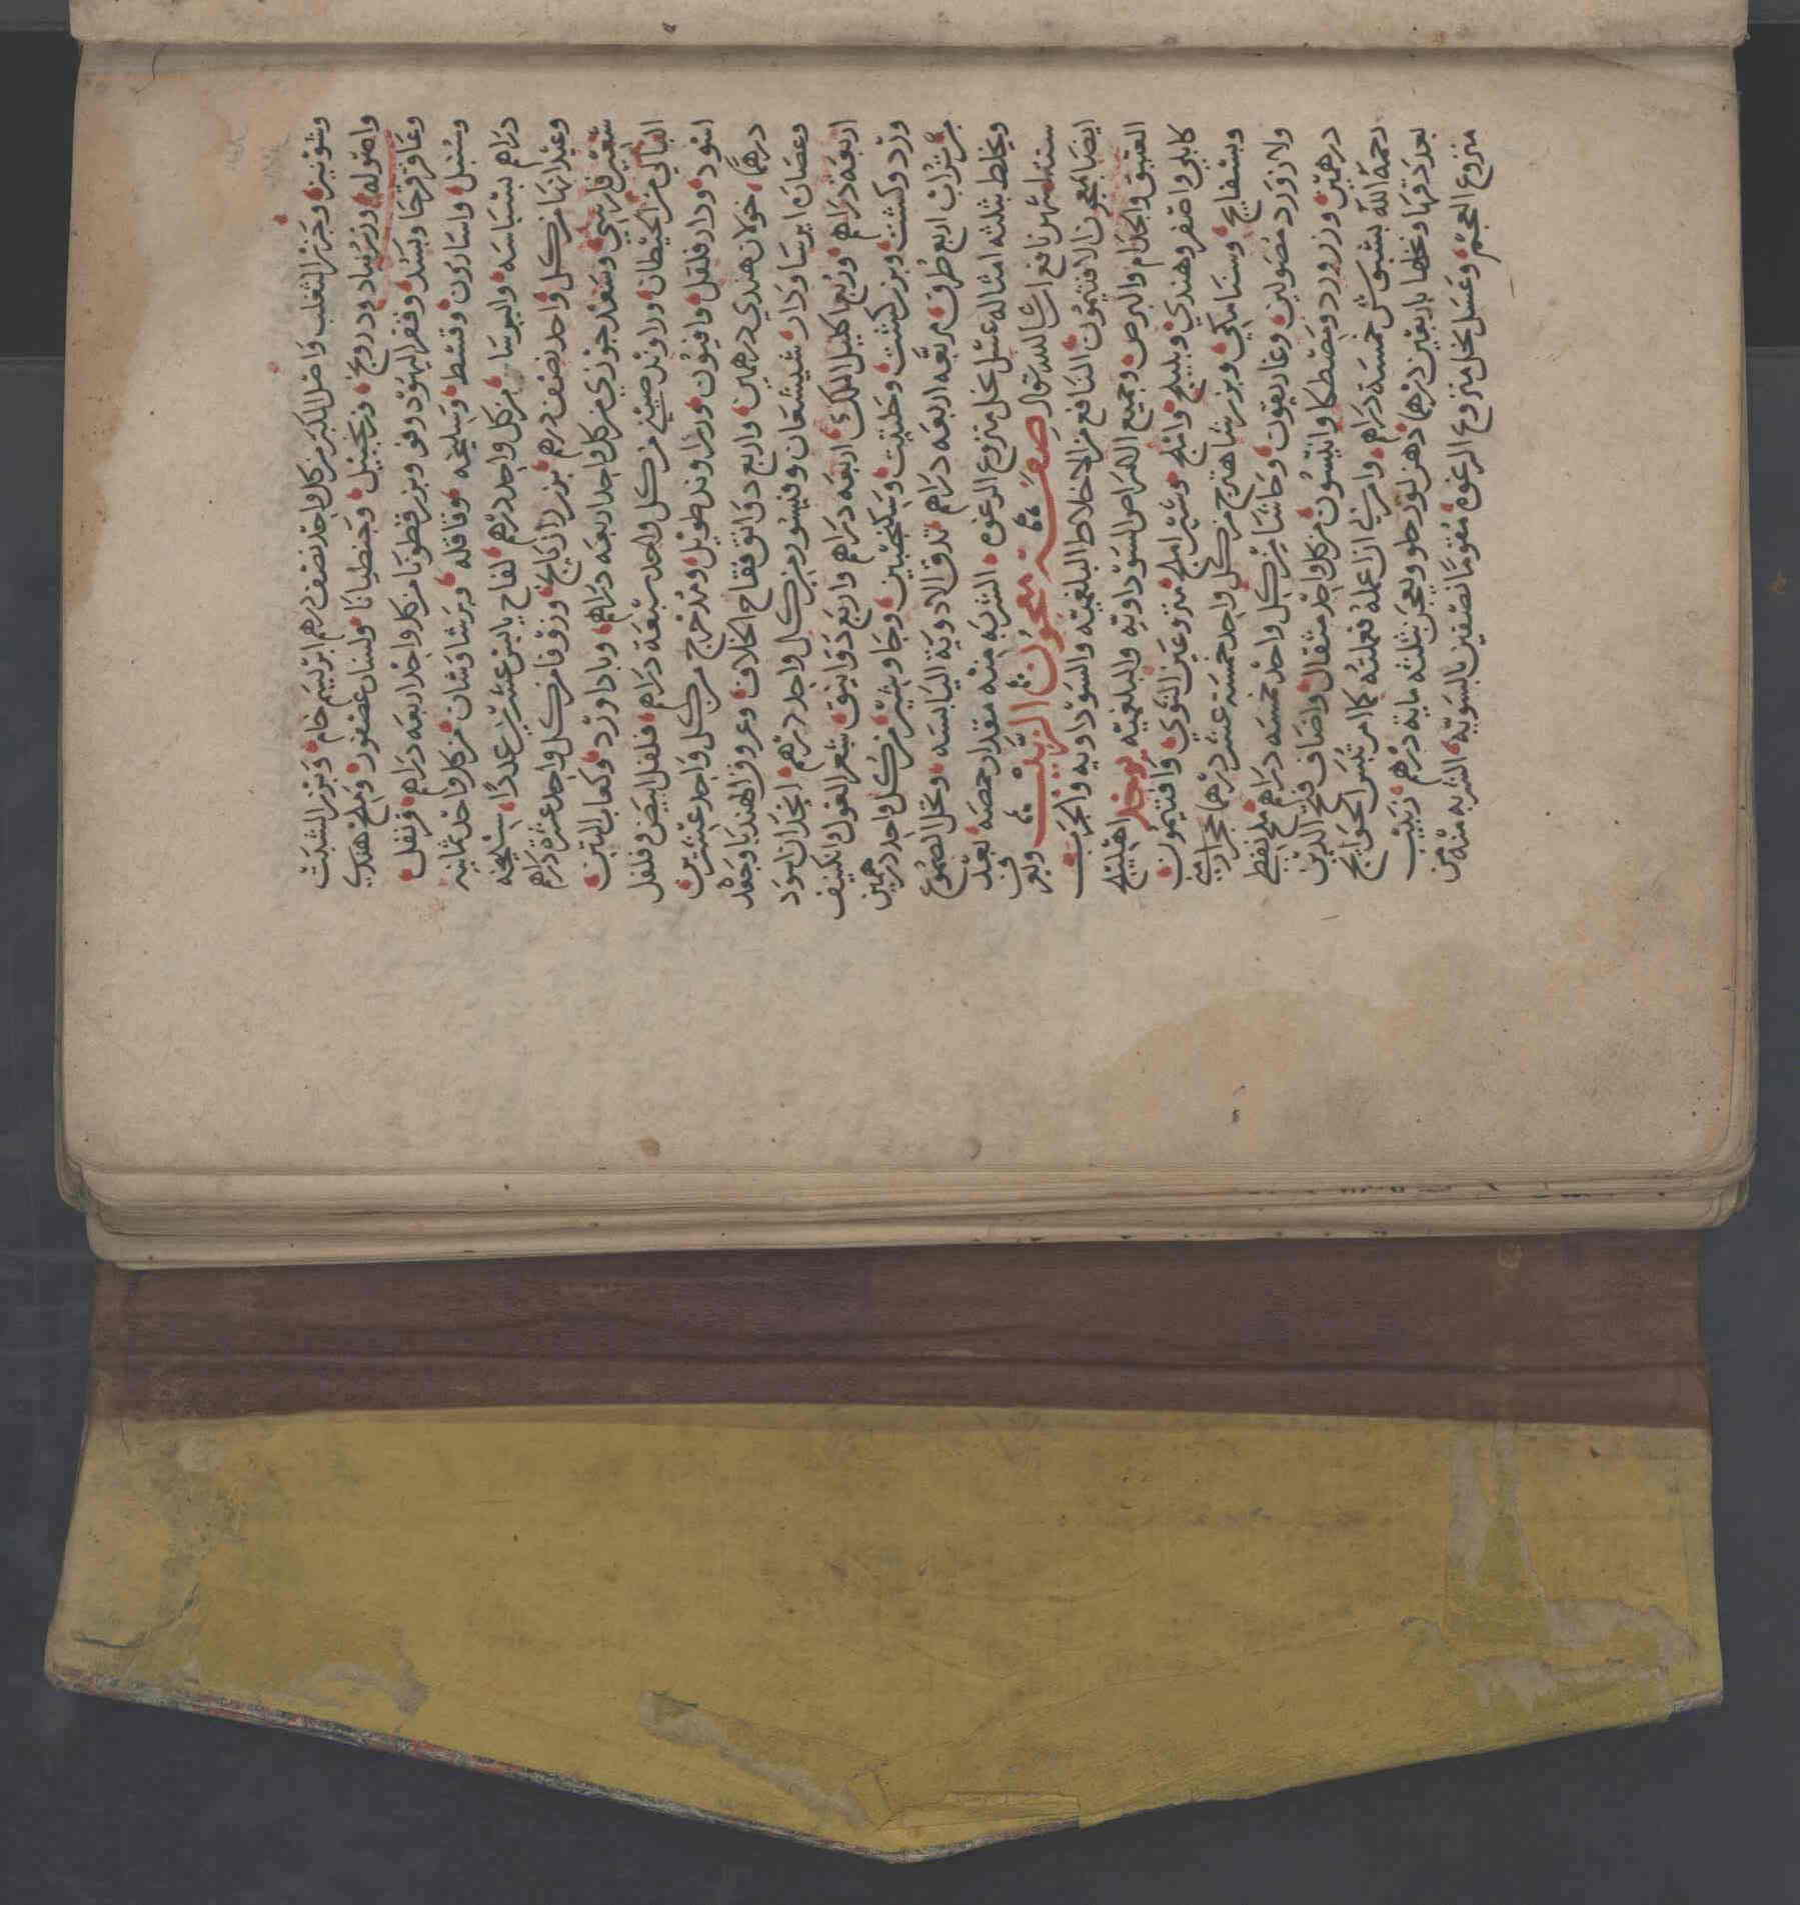 وشونيز وجزر الثعلب واصل الكبر من كل واحد نصف درهم ابريسم خام وبزر الشبت
واصوله وزرنباد ودرونج وزنجبيل وجنطيانا ولسان عصفور وملح هندي
وعاقرقرحا وبسد وقفر اليهود وفو وبزر قطونا من كل واحد اربعه دراهم قرنفل
وسنبل واسارون وقسط وسليخه وقاقله وبرشاوشان من كل واحد ثمانيه
دراهم بسباسه وايرسا من كل واحد درهم لفاح يابس عشرين عددا سليخه
وعيدانها من كل واحد نصف درهم بزر رازيانج وزوفا من كل واحد عشرة دراهم
شعير فارسي وسعد جوزي من كل واحد اربعه دراهم وباداورد وكعاب التين
البالي من الحيطان وراوند صيني من كل واحد سبعة دراهم فلفل ابيض وفلفل
اسود ودار فلفل وافيون وزراوند طويل ومدحرج من كل واحد عشرين
درهما خولان هندي درهمين واربع دوانق فقاح الخلاف وعروق الهندبا وجعده
وعصارة ايرسا ودار شيشعان من كل واحد درهم انجدان اسود
اربعة دراهم وربع اكليل الملك اربعه دراهم واربع دوانيق شعر الغول
وكشت وبزر كشت وحلتيت وسكنجبين وجاوشير من كل واحد درهمين
مر شراب اربع طرف مربعه اربعه دراهم تدق الادوية اليابسه وتحل الصموغ
ويخلط بثلثه امثاله عسل نحل منزوع الرغوه الشربه منه مقدار حمصه بعد
سته اشهر نافع ان شا الله تعالى صفة معجون الزبيب ويعرف
ايضا بمعجون الافتيمون النافع من الاخلاط البلغميه والسوداويه والجرب
العتيق والجذام والبرص وجميع الامراض السوداويه والبلغميه يوخذ اهليلج
كابلي واصفر وهندي وبليلج واملج وشير املج منزوعين النوي وافتيمون
وبسفايج وسنامكي وبزر شاهترج من كل واحد خمسة عشر درهما حجر ارميني
ولازورد مصولين وغاريقون وحاشا من كل واحد خمسه دراهم ملح نفطي
درهمين وزرورد ومصطكا وانيسون من كل واحد مثقال واضاف فتح الدين
رحمة الله خمسة دراهم وامرني ان اعمله فعملته كما امر تبس الحوايج
بعد دقها ونخلها باربعين درهما دهن لوز حلو ويعجن بثلثه ماية درهم زبيب
منزوع العجم وعسل نحل منزوع الرغوه مقوما نصفين بالسوية الشربه منه من